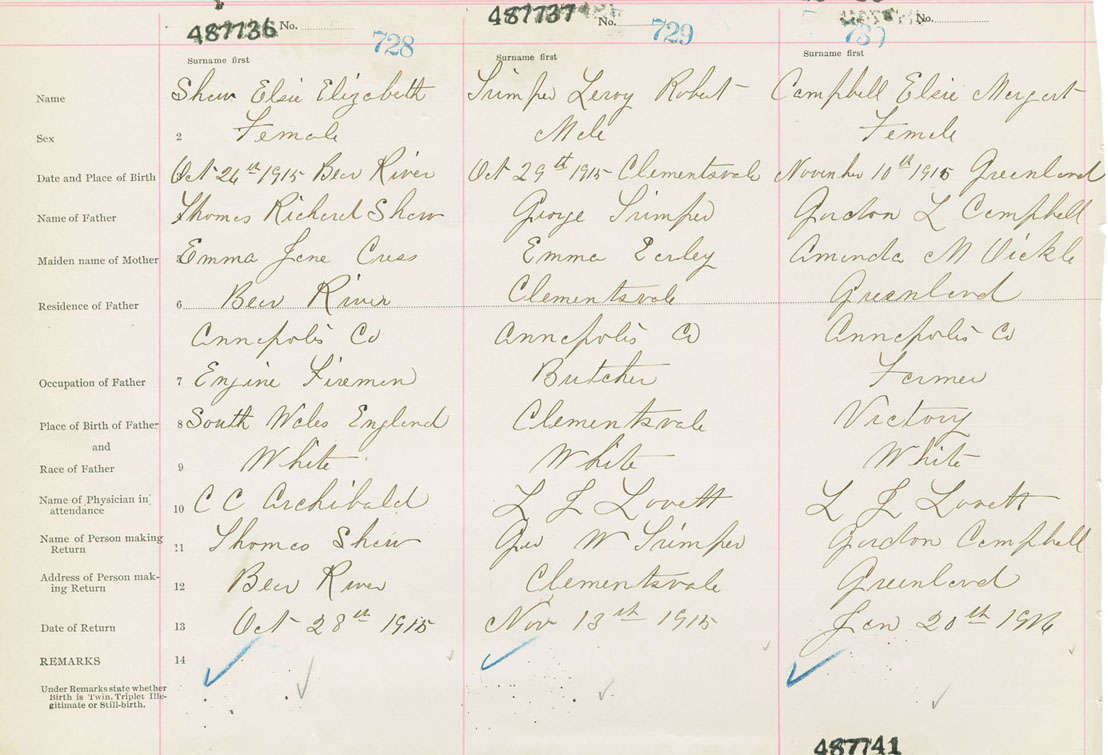 487736 No. 487737 No. No.
728 729 730
Surname first Surname first Surname first
Name Shaw Elsie Elizabeth Trimper Leroy Robert Campbell Elsie Margart
Sex 2 Female Male Female
Date and Place of Birth Oct 26th 1915 Bear River Oct 29th 1915 Clementsvale November 10th 1915 Greenland
Name of Father Thomas Richard Shaw George Trimper Gordon L Campbell
Maiden name of Mother Emma Jane Cress Emma Earley Amanda M Vickle
Residence of Father 6 Bear River Clementsvale Greenland
Annapolis Co Annapolis Co Annapolis Co
Occupation of Father 7 Engine Fireman Butcher Farmer
Place of Birth of Father 8 South Wales England Clementsvale Victory
and
Race of Father 9 White White White
Name of Physician in
attendance 10 C C Archibald L J Lovett L J Lovett
Name of Person making
Return 11 Thomas Shaw Geo W Trimper Gordon Campbell
Address of Person mak-
ing Return 12 Bear River Clementsvale Greenland
Date of Return 13 Oct 28th 1915 Nov 13th 1915 Jan 20th 1916
REMARKS 14
Under Remarks state whether
Birth is Twin, Triplet Ille-
gitimate or Still-birth.
487741